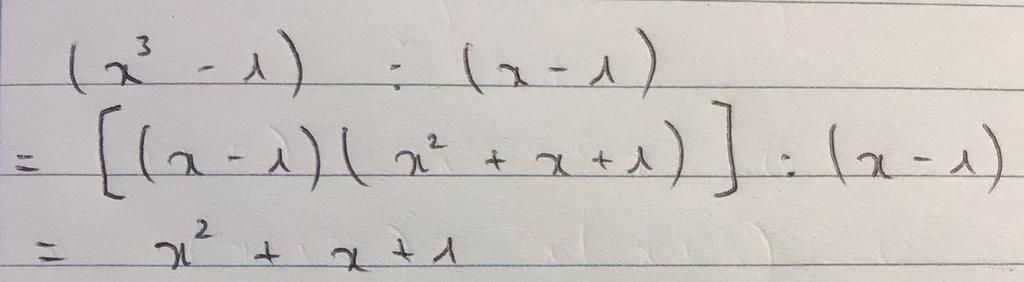 (x³ - 1) : (x - 1)
= [(x - 1)(x² + x + 1)] : (x - 1)
= x² + x + 1